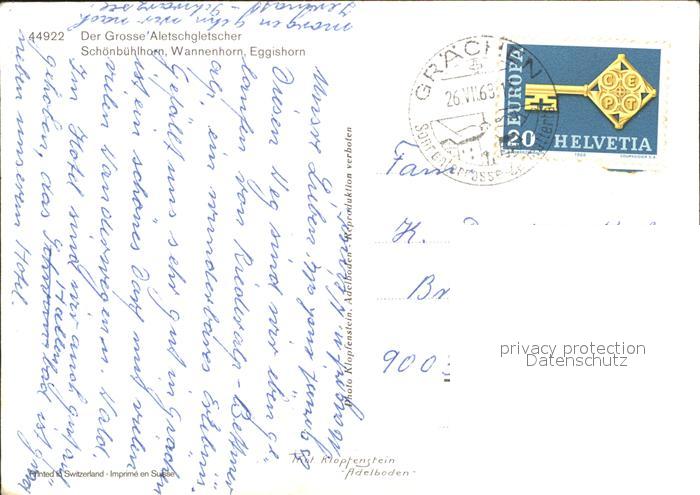 44922 Der Grosse Aletschgletscher
Schönbühlhorn, Wannenhorn, Eggishorn
morgen gehn wir nach
Schwarzsee.
Unsere Lieben,
Diesen Weg sind wir eben ge-
laufen von Riederalp - Bettmer
alp, ein wunderbares Erlebnis.
Gefällt uns sehr gut in Grächen
ist ein schönes Dorf mit vielen
vielen Wanderwegen u. Wald.
Im Hotel sind wir auch gut auf
gehoben, das Hallenbad ist grad
neben unserem Hotel.
Photo Klopfenstein, Adelboden - Reproduktion verboten
GRÄCHEN
26.VII.68
EUROPA
CEPT
20 HELVETIA
1968 COURVOISIER S.A.
Fam
K.
Br
900
privacy protection
Datenschutz
Phot Klopfenstein
- Adelboden -
Printed in Switzerland - Imprimé en Suisse